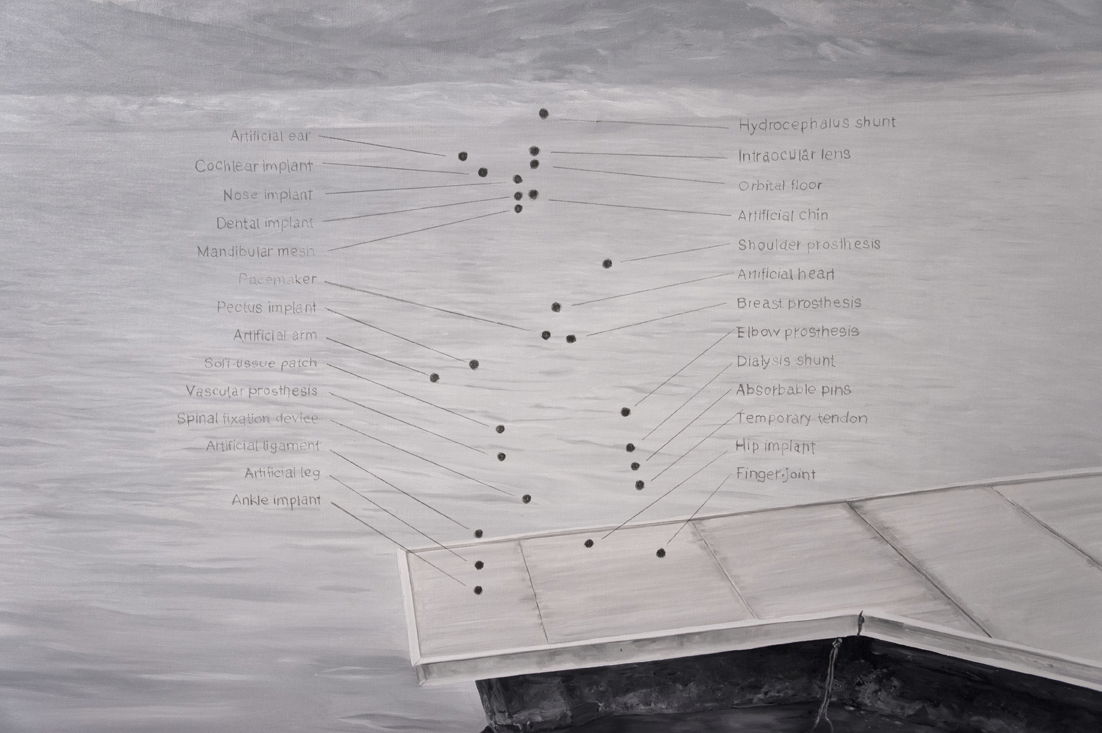 Artificial ear
Cochlear implant
Nose implant
Dental implant
Mandibular mesh
Pacemaker
Pectus implant
Artificial arm
Soft-tissue patch
Vascular prosthesis
Spinal fixation device
Artificial ligament
Artificial leg
Ankle implant
Hydrocephalus shunt
Intraocular lens
Orbital floor
Artificial chin
Shoulder prosthesis
Artificial heart
Breast prosthesis
Elbow prosthesis
Dialysis shunt
Absorbable pins
Temporary tendon
Hip implant
Finger-joint